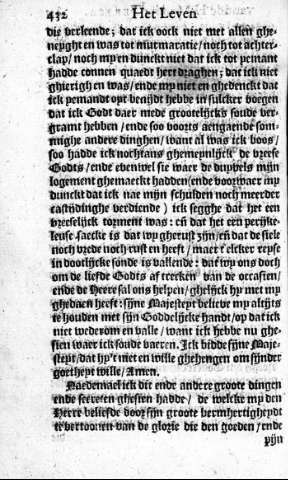 432 Het Leven
die verleende; dat ick oock niet met allen ghe-
neyght en was tot murmuratie / noch tot achter-
clap / noch my en dunckt niet dat ick tot yemant
hadde connen quaedt hert draghen; dat ick niet
ghierigh en was / ende my niet en ghedenckt dat
ick yemandt oyt benijdt hebbe in sulcker voegen
dat ick Godt daer mede grootelijcks soude ver-
gramt hebben / ende soo voorts aengaende som-
mighe andere dinghen / want al was ick boos /
soo hadde ick nochtans ghemeynlijck de vreese
Godts / ende evenwel sie waer de duyvels mijn
logement ghemaeckt hadden (ende voorwaer my
dunckt dat ick nae mijn schulden noch meerder
castijdinghe verdiende) ick segghe dat het een
vreeselijck torment was: eñ dat het een perijke-
leuse saecke is dat wy gherust zijn / eñ dat de siele
noch vrede noch rust en heeft / maer t'elcker reyse
in doodlijcke sonde is vallende: dat wy ons doch
om de liefde Godts af trecken van de occasien /
ende de Heere sal ons helpen / ghelijck hy met my
ghedaen heeft: sijne Majesteyt believe my altijts
te houden met sijn Goddelijcke handt / op dat ick
niet wederom en valle / want ick hebbe nu ghe-
sien waer ick soude vaeren. Ick bidde sijne Maje-
steyt / dat hy't niet en wille ghehengen om sijnder
goetheyt wille / Amen.
Naedemael ick dit ende andere groote dingen
ende secreten ghesien hadde / de welcke my den
Heere beliefde door sijn groote bermhertigheydt
te vertoonen van de glorie die den goeden / ende
pijn